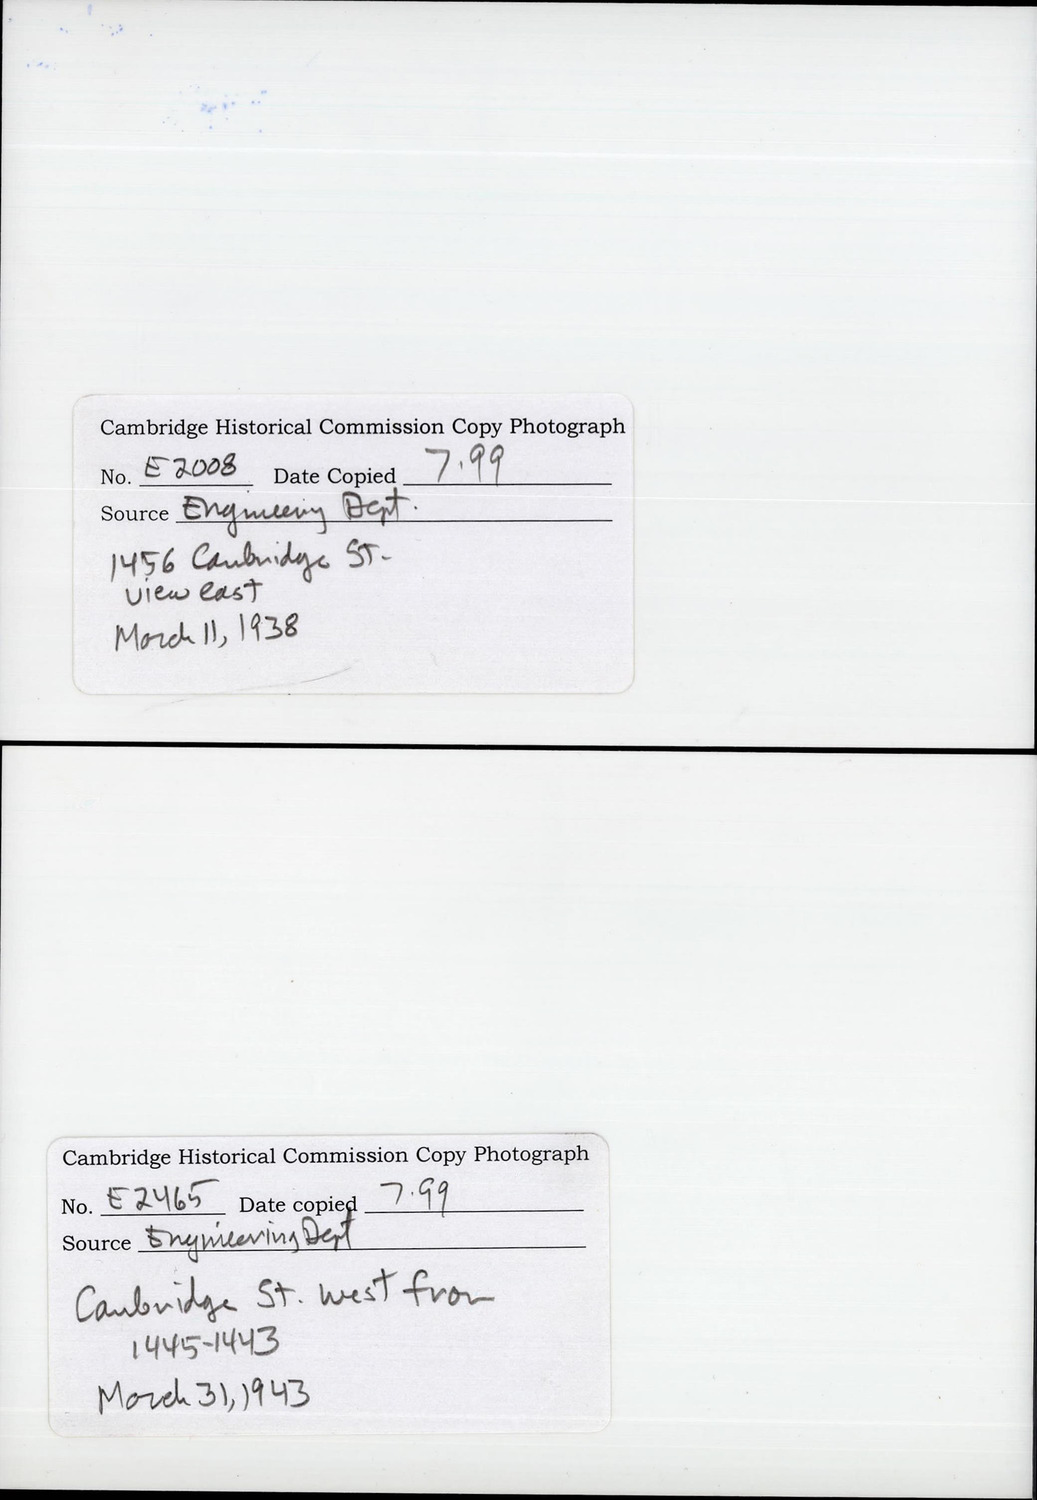 Cambridge Historical Commission Copy Photograph
No. E2008 Date Copied 7.99
Source Engineering Dept.
1456 Cambridge St.
view east
March 11, 1938
Cambridge Historical Commission Copy Photograph
No. E2465 Date copied 7.99
Source Engineering Dept
Cambridge St. west from
1445-1443
March 31, 1943